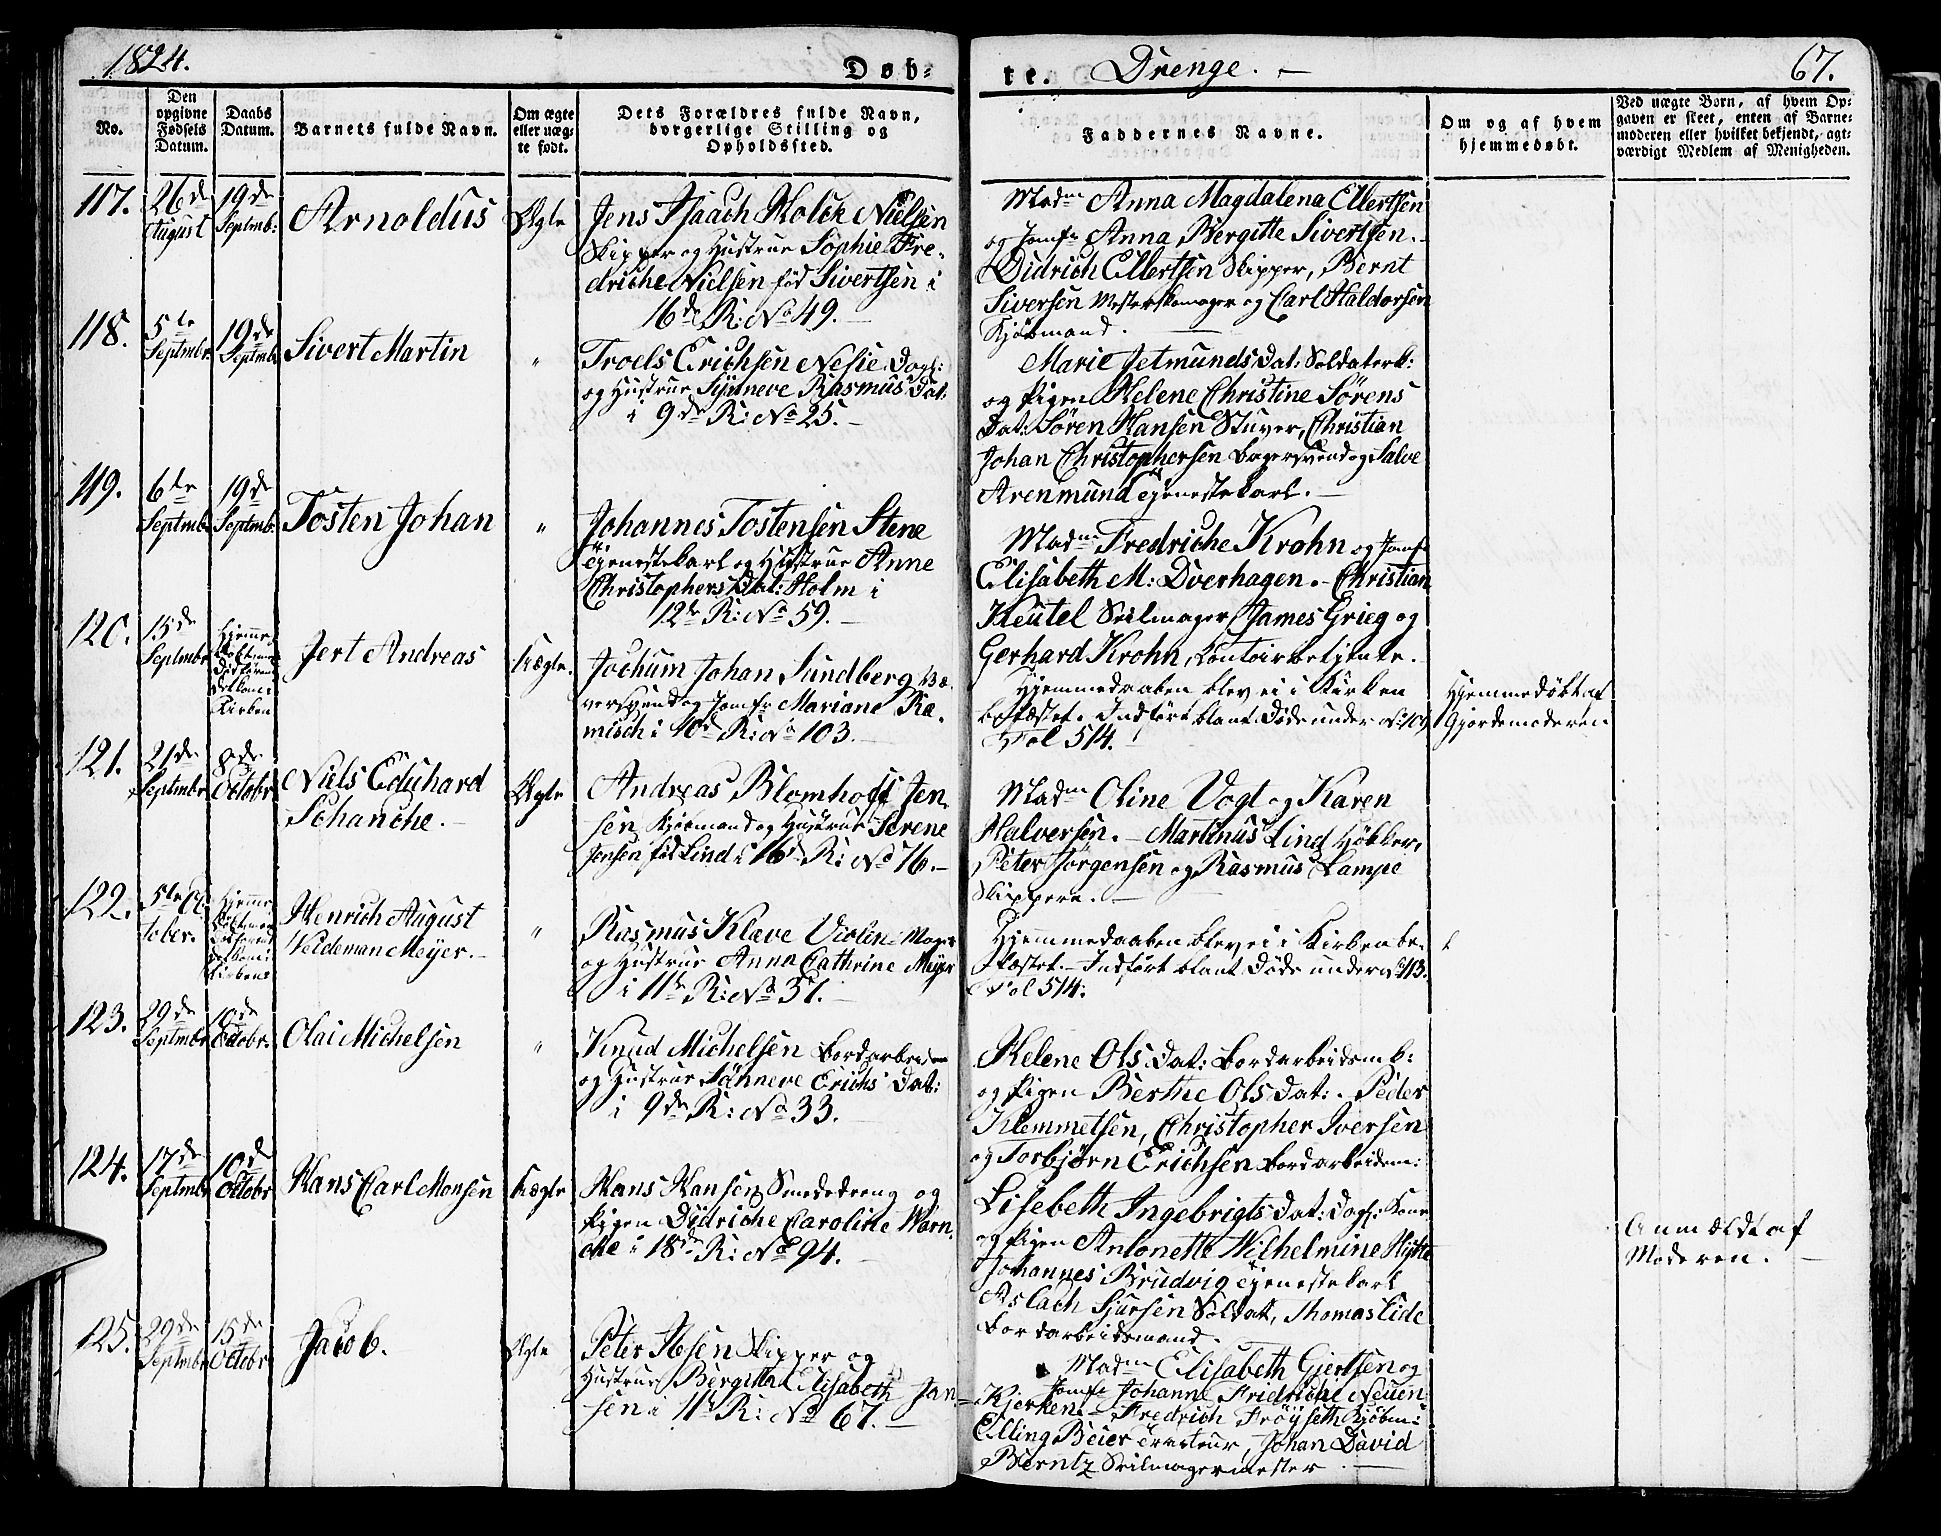 1824.
Døb-
te. Drenge. —
67.
No.
Den opgivne Fødsels Datum.
Daabs Datum.
Barnets fulde Navn.
Om ægte eller uægte født.
Dets Forældres fulde Navn, borgerlige Stilling og Opholdssted.
Faddernes Navne.
Om og af hvem hjemmedøbt.
Ved uægte Børn, af hvem Opgaven er skeet, enten af Barnemoderen eller hvilket bekjendt, agtværdigt Medlem af Menigheden.
117.
26de August
19de Septmb:
Arnoldus
Ægte
Jens Isaach Holck Nielsen
Skipper og Hustrue Sophie Fre-
driche Nielsen fød Sivertsen i
16de R: No 49. —
Madm Anna Magdalena Ellertsen
og Jomfr Anna Bergitte Sivertsen. —
Didrich Ellertsen Skipper, Bernt
Siversen Mesterskomager og Carl Haldorsen
Kjøbmand.
118.
5te Septmbr
19de Septmb
Sivert Martin
"
Troels Erichsen Nesie Dagl:
og Hustrue Synneve Rasmus Dat:
i 9de R: No 25. —
Marie Jetmunds Dat: Soldaterk:
og Pigen Helene Christine Sørens
Dat: Søren Hansen Stuver, Christian
Johan Christophersen Bagersvend og Salve
Arenmund Tjenestekarl. —
119.
6te Septmb
19de Septmb.
Tosten Johan
"
Johannes Tostensen Stene
Tjenestekarl og Hustrue Anne
Christophers Dat: Holm i
12te R: No 59. —
Madm Fredriche Krohn og Jomfr
Elisabeth M: Dverhagen. — Christian
Keutel Seilmager, James Grieg og
Gerhard Krohn, Contoirbetjente.
120.
15de Septmbr
Hjemme
Kirken
Jert Andreas
Uægte.
Jochum Johan Sundberg Væ-
versvend og Jomfr Mariane Ra-
misch i 10de R: No 103.
Hjemmedaaben blev ei i Kirken
bekræftet. Indført blant Døde under No 109
Fol 514.
Hjemmedøbt af
Gjordemoderen.
121.
21de Septmbr
8de Octobr
Niels Edvhard
Schanche. —
Ægte
Andreas Blomhoff Jen-
sen Kjøbmand og Hustrue Serene
Jensen fød Lind i 16de R: No 76. —
Madm Oline Vogt og Karen
Halversen. — Martinus Lind Høkker,
Peter Jørgensen og Rasmus Lampe
Skippere. —
122.
5te Oc-
tober.
Hjemme
Kirken
Henrich August
Veideman Meyer. —
"
Rasmus Kleve Violin-Mager
og Hustrue Anna Cathrine Meyer
i 11te R: No 37. —
Hjemmedaaben blev ei i Kirken be-
kræftet. — Indført blant Døde under No 113.
Fol 514.
123.
29de Septmbr
10de Octobr.
Olai Michelsen
"
Knud Michelsen Bordarbeider
og Hustrue Sønneve Erichs Dat:
i 9de R: No 33.
Helene Ols Dat: Bordarbeidsmk:
og Pigen Berthe Ols Dat: - Peder
Klemmetsen, Christopher Iversen
og Torbjørn Erichsen Bordarbeidsm:
124.
17de Septmbr
10de Octobr
Hans Carl Monsen
Uægte
Hans Hansen Smededreng og
Pigen Didriche Caroline Warn-
cke i 18de R: No 94. —
Lisebeth Ingebrigts Dat: Dagl: Kone
og Pigen Antonette Wilhelmine Hytte
Johannes Brudvig Tjenestekarl
Aslach Sjursen Soldat, Thomas Eide
Bordarbeidsmand.
Anmeldt af
Moderen. —
125.
29de Septmbr
15de Octobr
Jacob.
Ægte
Peter Ibsen Skipper og
Hustrue Bergitha Elisabeth Jan-
sen i 11te R: No 67. —
Madm Elisabeth Gjertsen og
Jomfr Johanne Fridriche Neuen-
Kjerken. — Fredrich Frøyseth Kjøbm:
Elling Beier Tracteur, Johan David
Berntz Seilmagermester —